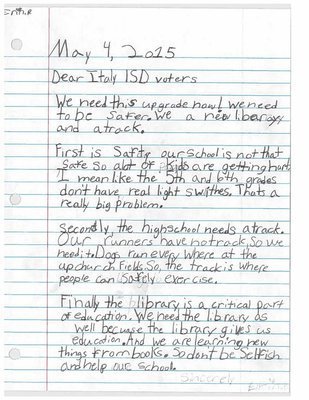 May 4, 2015
Dear Italy ISD voters
We need this upgrade now! we need
to be safer. We a new liberary
and atrack.
First is Safty our school is not that
safe so alot of kids are getting hurt.
I mean like the 5th and 6th grades
don't have real light swithes. Thats a
really big problem.
Secondly, the highschool needs atrack.
Our runners have notrack, So we
needit. Dogs run every where at the
upchurch Fields. So, the track is where
people can safely exercise.
Finally the library is a critical part
of education. We need the library as
well becuase the library gives us
education. And we are learning new
things from books. So dont be Selfish
and help our school.
Sincerely